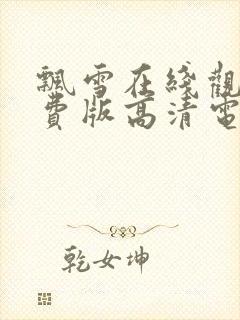 飄雪在綫觀
費版高清電
乾女坤